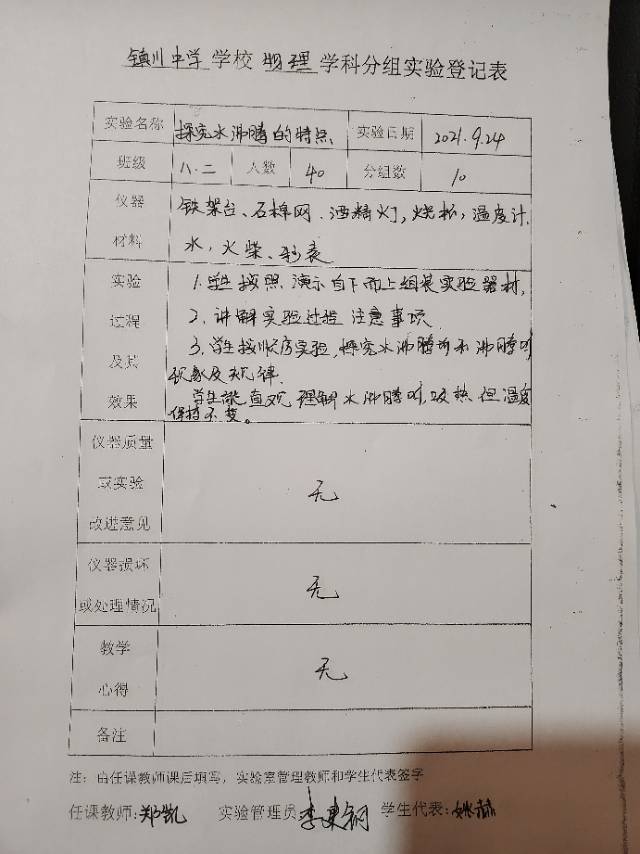 镇川中学 学校 物理 学科分组实验登记表
实验名称 探究水沸腾的特点 实验日期 2021.9.24
班级 八.二 人数 40 分组数 10
仪器 铁架台、石棉网、酒精灯,烧杯,温度计.
材料 水,火柴、秒表
实验 1.学生按照演示自下而上组装实验器材,
过程 2.讲解实验过程 注意事项
及其 3.学生按顺序实验,探究水沸腾前和沸腾时
现象及规律.
效果 学生能直观理解水沸腾时,吸热但温度
保持不变。
仪器质量
或实验 无
改进意见
仪器损坏
或处理情况 无
教学 无
心得
备注
注:由任课教师课后填写,实验室管理教师和学生代表签字
任课教师:郑凯 实验管理员: 学生代表: